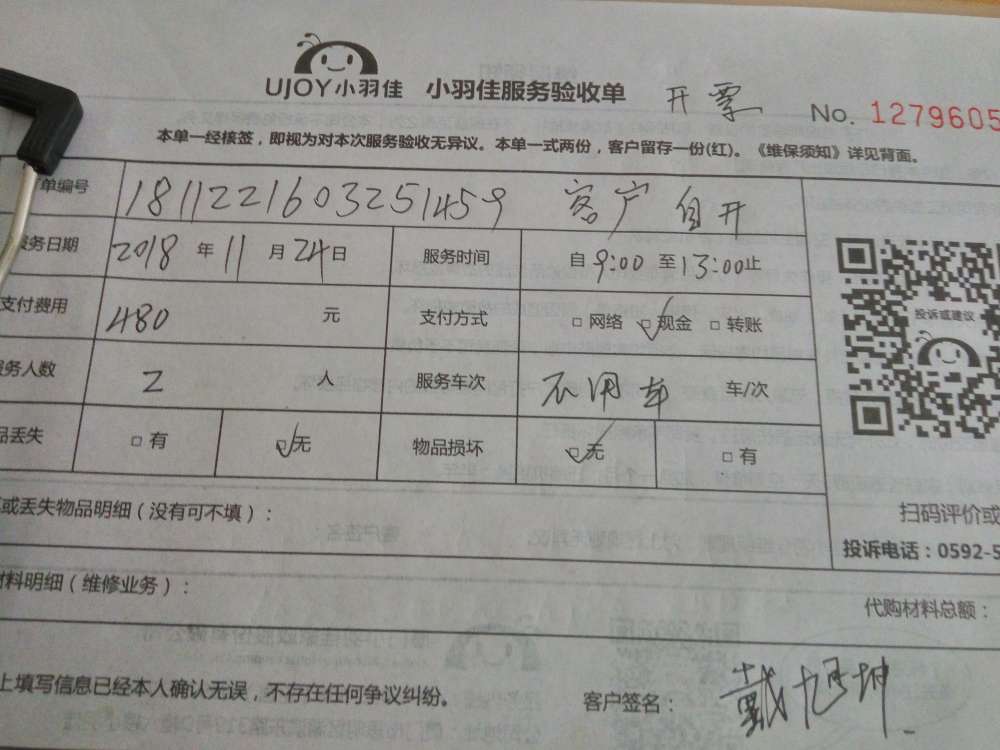 UJOY小羽佳 小羽佳服务验收单 开票 No. 1279605
本单一经核签，即视为对本次服务验收无异议。本单一式两份，客户留存一份(红)。《维保须知》详见背面。
单编号 1811221603251459 客户自开
务日期 2018 年 11 月 24 日 服务时间 自 9:00 至 13:00 止
支付费用 480 元 支付方式 □ 网络 ☑ 现金 □ 转账
投诉或建议
务人数 2 人 服务车次 不用车 车/次
品丢失 □ 有 ☑ 无 物品损坏 ☑ 无 □ 有
或丢失物品明细（没有可不填）：
扫码评价或
投诉电话：0592-5
材料明细（维修业务）：
代购材料总额：
上填写信息已经本人确认无误，不存在任何争议纠纷。
客户签名： 戴旭坤